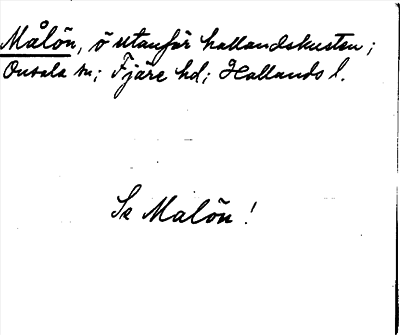 Målön, ö utanför hallandskusten;
Onsala sn; Fjäre hd; Hallands l.
Se Malön!